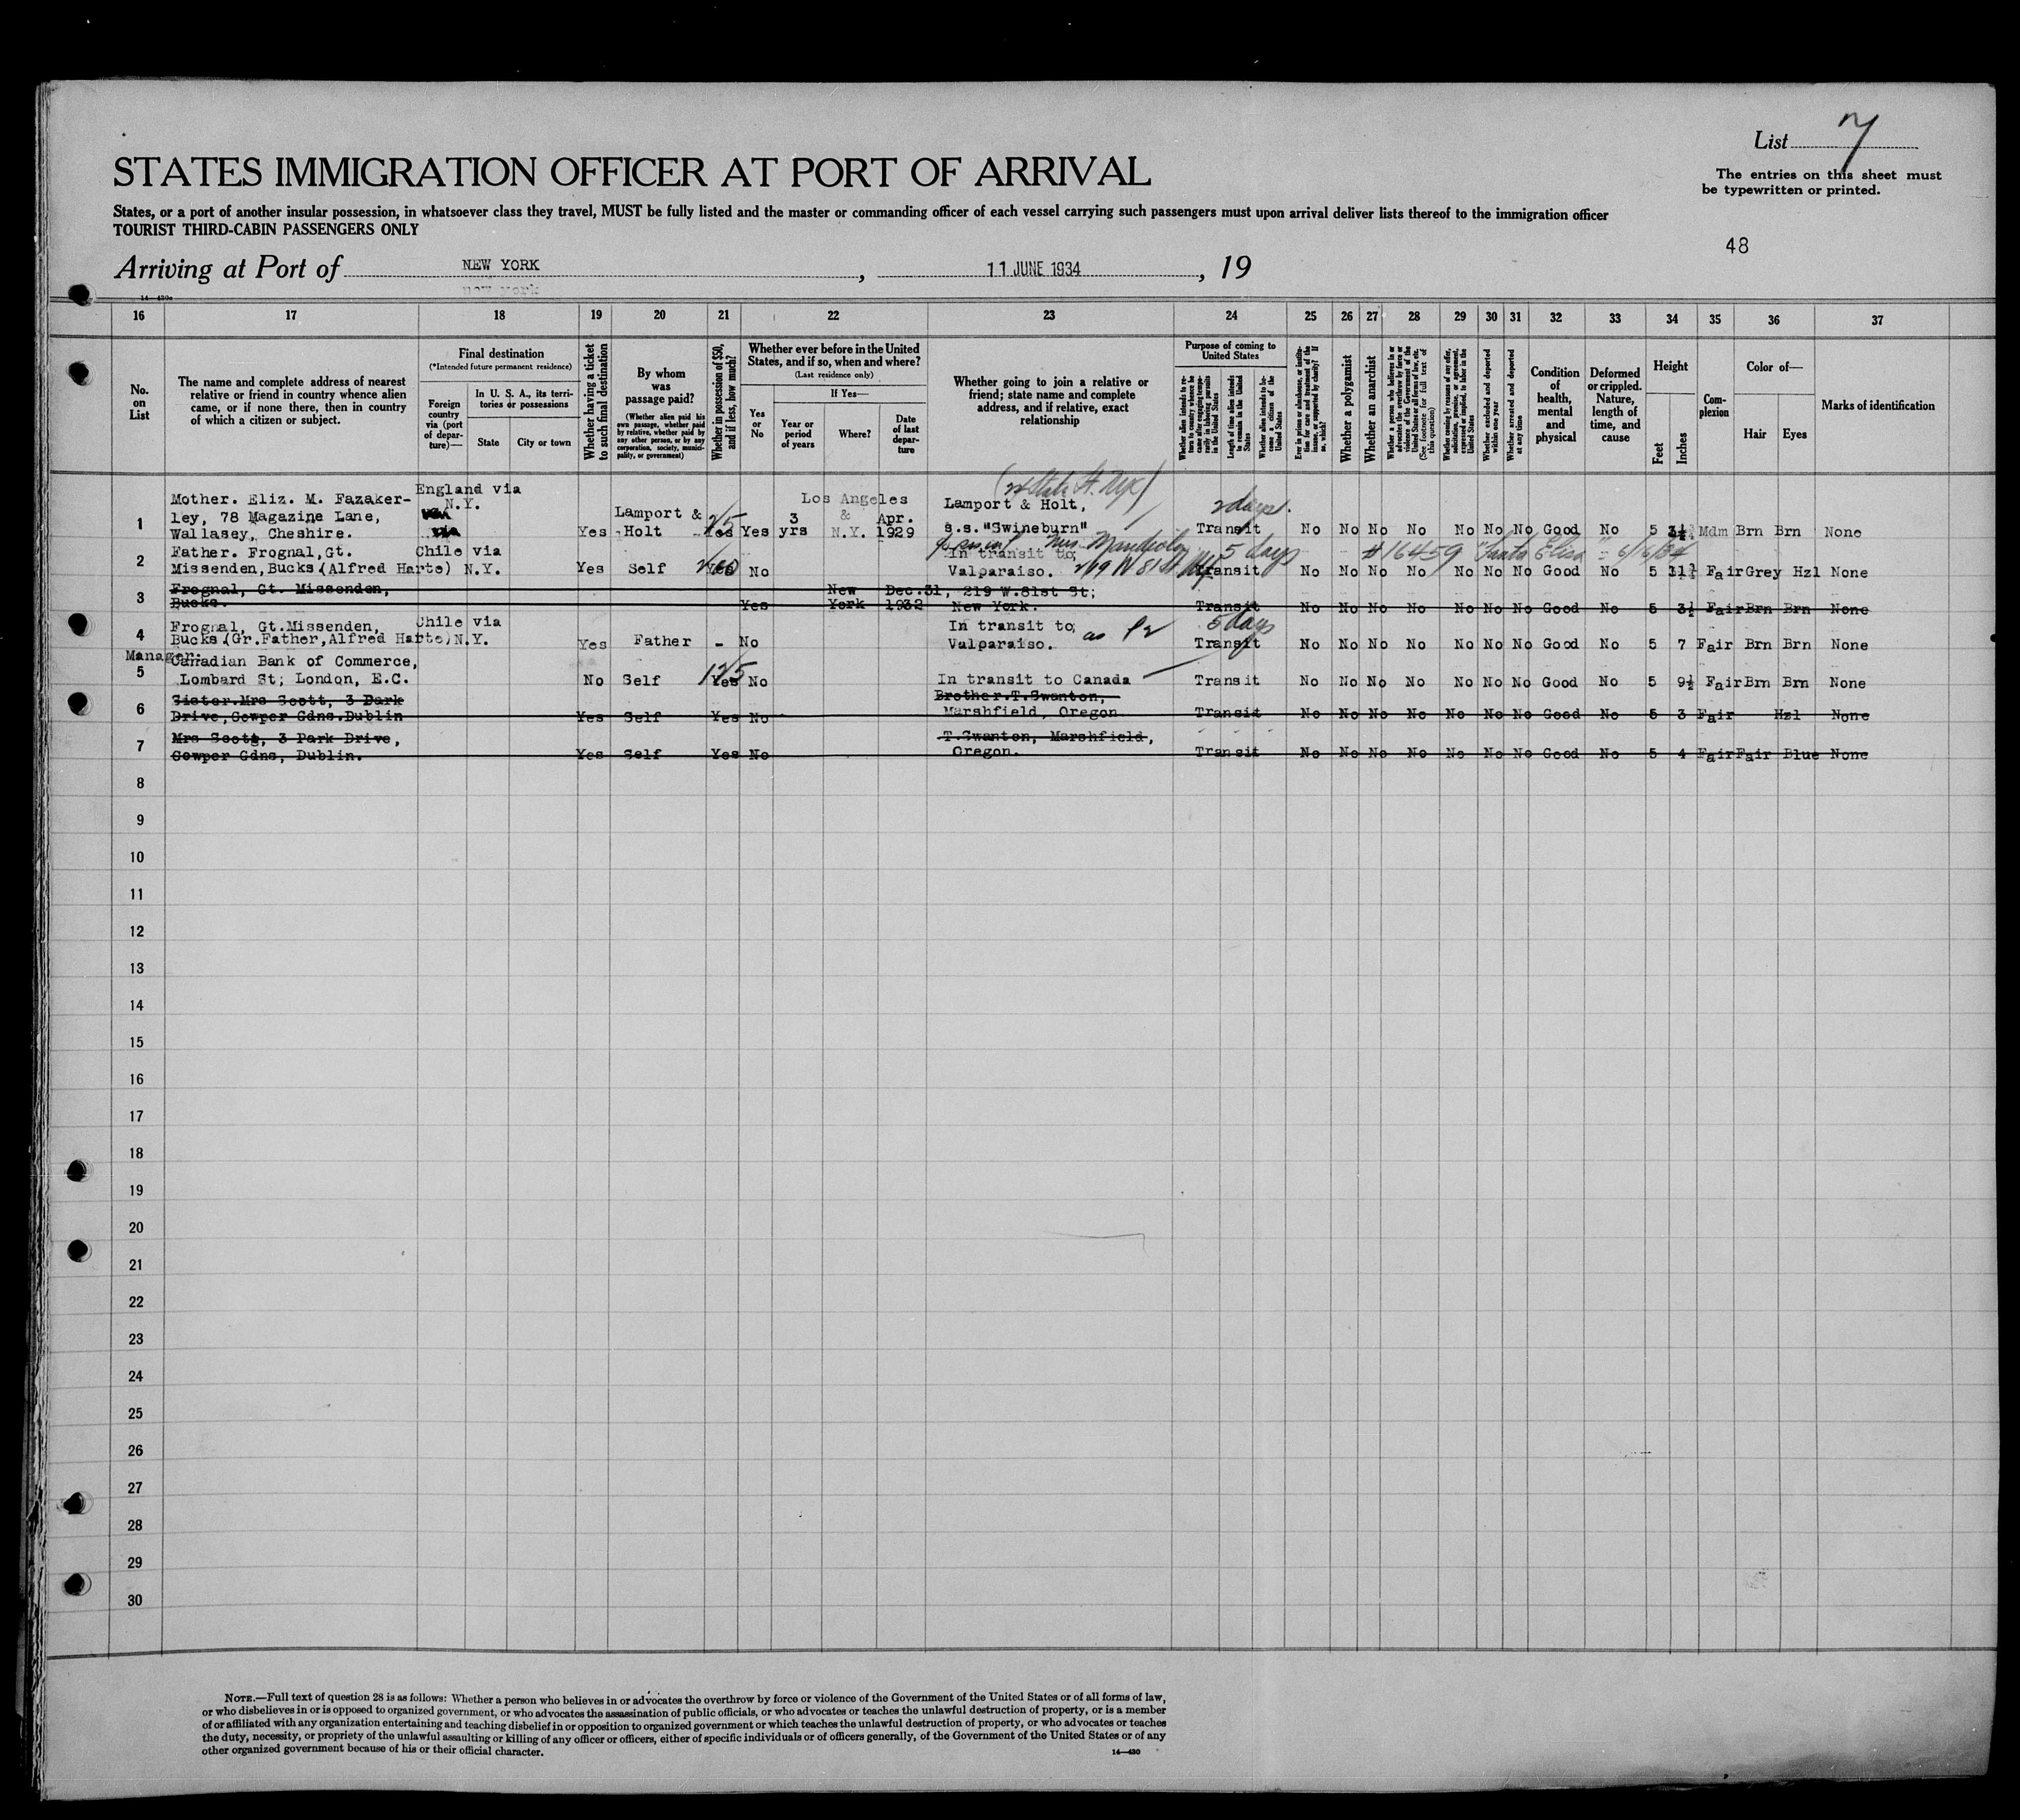 List 7
STATES IMMIGRATION OFFICER AT PORT OF ARRIVAL
The entries on this sheet must
be typewritten or printed.
States, or a port of another insular possession, in whatsoever class they travel, MUST be fully listed and the master or commanding officer of each vessel carrying such passengers must upon arrival deliver lists thereof to the immigration officer
TOURIST THIRD-CABIN PASSENGERS ONLY
48
Arriving at Port of NEW YORK, 11 JUNE 1934, 19
new york
16 17 18 19 20 21 22 23 24 25 26 27 28 29 30 31 32 33 34 35 36 37
No. on List
The name and complete address of nearest relative or friend in country whence alien came, or if none there, then in country of which a citizen or subject.
Final destination
(*Intended future permanent residence)
Foreign country via (port of departure)—
In U. S. A., its territories or possessions
State
City or town
Whether having a ticket to such final destination
By whom was passage paid?
(Whether alien paid his own passage, whether paid by relative, whether paid by any other person, or by any corporation, society, municipality, or government)
Whether in possession of $50, and if less, how much?
Whether ever before in the United States, and if so, when and where?
(Last residence only)
Yes or No
If Yes—
Year or period of years
Where?
Date of last departure
Whether going to join a relative or friend; state name and complete address, and if relative, exact relationship
Purpose of coming to United States
Whether alien intends to return to country whence he came after engaging temporarily in laboring pursuits in the United States
Length of time alien intends to remain in the United States
Whether alien intends to become a citizen of the United States
Ever in prison or almshouse, or institution for care and treatment of the insane, or supported by charity? If so, which?
Whether a polygamist
Whether an anarchist
Whether a person who believes in or advocates the overthrow by force or violence of the Government of the United States or all forms of law, etc. (See footnote for full text of this question)
Whether coming by reason of any offer, solicitation, promise, or agreement, expressed or implied, to labor in the United States
Whether excluded and deported within one year
Whether arrested and deported at any time
Condition of health, mental and physical
Deformed or crippled. Nature, length of time, and cause
Height
Feet
Inches
Complexion
Color of—
Hair
Eyes
Marks of identification
1 Mother. Eliz. M. Fazaker- England via Lamport & Los Angeles Lamport & Holt, 2 days.
ley, 78 Magazine Lane, N.Y. 3 & Apr.
Wallasey, Cheshire. via Yes Holt Yes Yes yrs N.Y. 1929 s.s."Swineburn" Transit No No No No No No No Good No 5 3½ Mdm Brn Brn None
2 Father. Frognal,Gt. Chile via In transit to; 5 days # 16459 "Santa Elisa" 6/16/34
Missenden,Bucks (Alfred Harte) N.Y. Yes Self Yes No Valparaiso. Transit No No No No No No No Good No 5 Fair Grey Hzl None
3 Frognal, Gt. Missenden, New Dec.31, 219 W.81st St;
Bucks. Yes York 1932 New York. Transit No No No No No No No Good No 5 3½ Fair Brn Brn None
4 Frognal, Gt.Missenden, Chile via In transit to; 5 days
Bucks.(Gr.Father,Alfred Harte)N.Y. Yes Father - No Valparaiso. Transit No No No No No No No Good No 5 7 Fair Brn Brn None
Manager:
5 Canadian Bank of Commerce, 125
Lombard St; London, E.C. No Self Yes No In transit to Canada Transit No No No No No No No Good No 5 9½ Fair Brn Brn None
6 Sister.Mrs Scott, 3 Park Brother.T.Swanton,
Drive,Cowper Gdns.Dublin Yes Self Yes No Marshfield, Oregon Transit No No No No No No No Good No 5 3 Fair Hzl None
7 Mrs Scott, 3 Park Drive, T.Swanton, Marshfield,
Cowper Gdns, Dublin. Yes Self Yes No Oregon. Transit No No No No No No No Good No 5 4 Fair Fair Blue None
8
9
10
11
12
13
14
15
16
17
18
19
20
21
22
23
24
25
26
27
28
29
30
NOTE.—Full text of question 28 is as follows: Whether a person who believes in or advocates the overthrow by force or violence of the Government of the United States or of all forms of law,
or who disbelieves in or is opposed to organized government, or who advocates the assassination of public officials, or who advocates or teaches the unlawful destruction of property, or is a member
of or affiliated with any organization entertaining and teaching disbelief in or opposition to organized government or which teaches the unlawful destruction of property, or who advocates or teaches
the duty, necessity, or propriety of the unlawful assaulting or killing of any officer or officers, either of specific individuals or of officers generally, of the Government of the United States or of any
other organized government because of his or their official character.
14—430